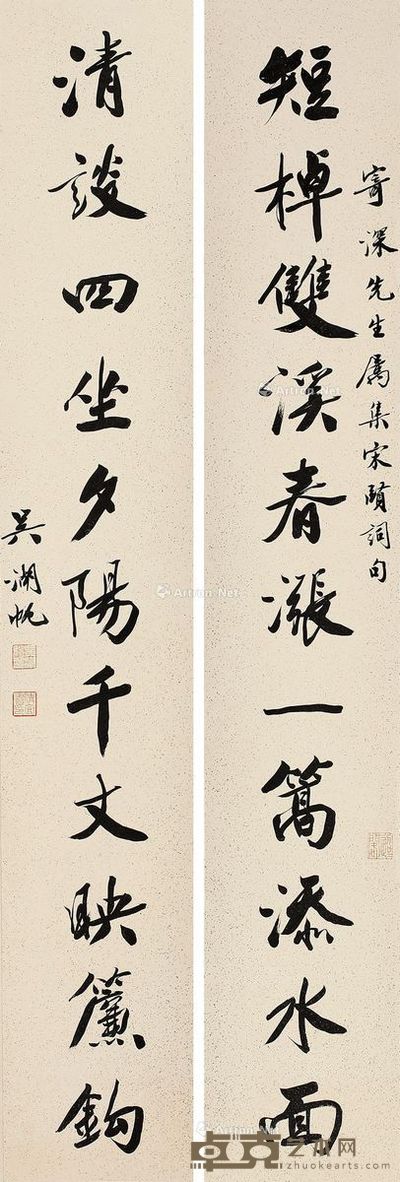 寄深先生属集宋贤词句
短棹雙溪春漲一篙添水面
清談四坐夕陽千丈映簾鈎
吴湖帆
Artron.Net
卓克艺术网
zhuokearts.com